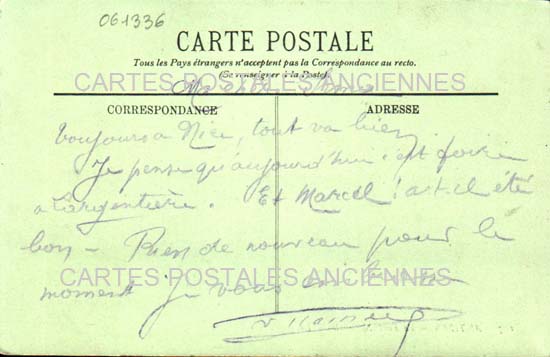 061336
CARTE POSTALE
Tous les Pays étrangers n'acceptent pas la Correspondance au recto.
(Se renseigner à la Poste).
CARTES POSTALES ANCIENNES
CORRESPONDANCE
ADRESSE
Toujours à Nice, tout va bien
Je pense qu'aujourd'hui c'est foire
a Largentière. Et Marcel! a-t-il été
bon - Rien de nouveau pour le
CARTES POSTALES ANCIENNES
moment je vous